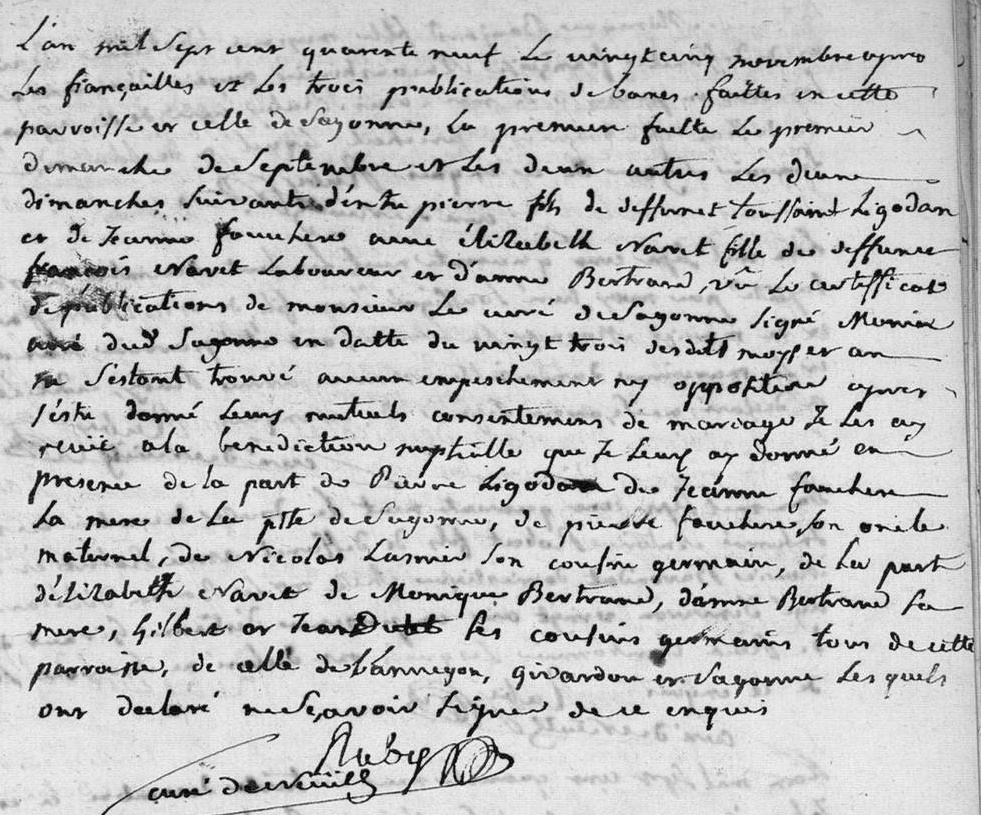 L'an mil sept cent quarente neuf le vingt cinq novembre apres
les fiançailles et les trois publications de banes faittes en cette
parroisse et celle de Sagonne, la premiere faitte le premier
dimanche de Septembre et les deux autres les deux
dimanches suivants d'entre pierre fils de deffunct toussaint Ligodan
et de Jeanne fouchere avec élizabeth Navet fille de deffunct
françois Navet Laboureur et d'anne Bertrand, vû le certifficat
de publications de monsieur le curé de Sagonne signé
curé dud Sagonne en datte du vingt trois desdits moys et an
ne s'estant trouvé aucun empeschement ny opposition apres
s'estre donné leurs mutuels consentemens de mariage Je les ay
recüe a la benediction nuptialle que Je leurs ay donné en
presence de la part de Pierre Ligodan de Jeanne fouchere
la mere de la psse de Sagonne, de pierre fouchere son oncle
maternel, de Nicolas son cousin germain, de la part
d'élizabeth Navet de Monique Bertrand, d'anne Bertrand sa
mere, Gilbert et Jean ses cousins germains tous de cette
parroisse, de celle de bannegon, givardon et Sagonne lesquels
ont declaré ne sçavoir signer de ce enquis
Auby
curé de Neuilly